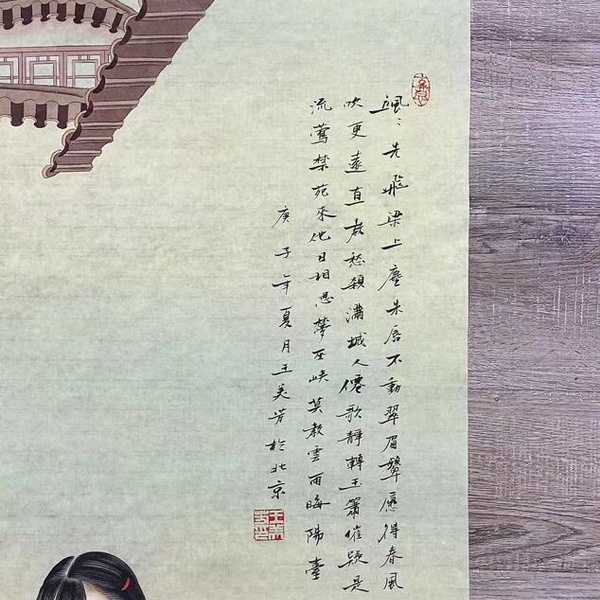 颯〻先飛梁上塵朱唇不動翠眉顰愿得春風
吹更遠直教愁殺滿城人僊歌靜轉玉簫催疑是
流鶯禁苑來他日相思夢巫峽莫教雲雨晦陽臺
庚子年夏月王美芳於北京
王美芳印